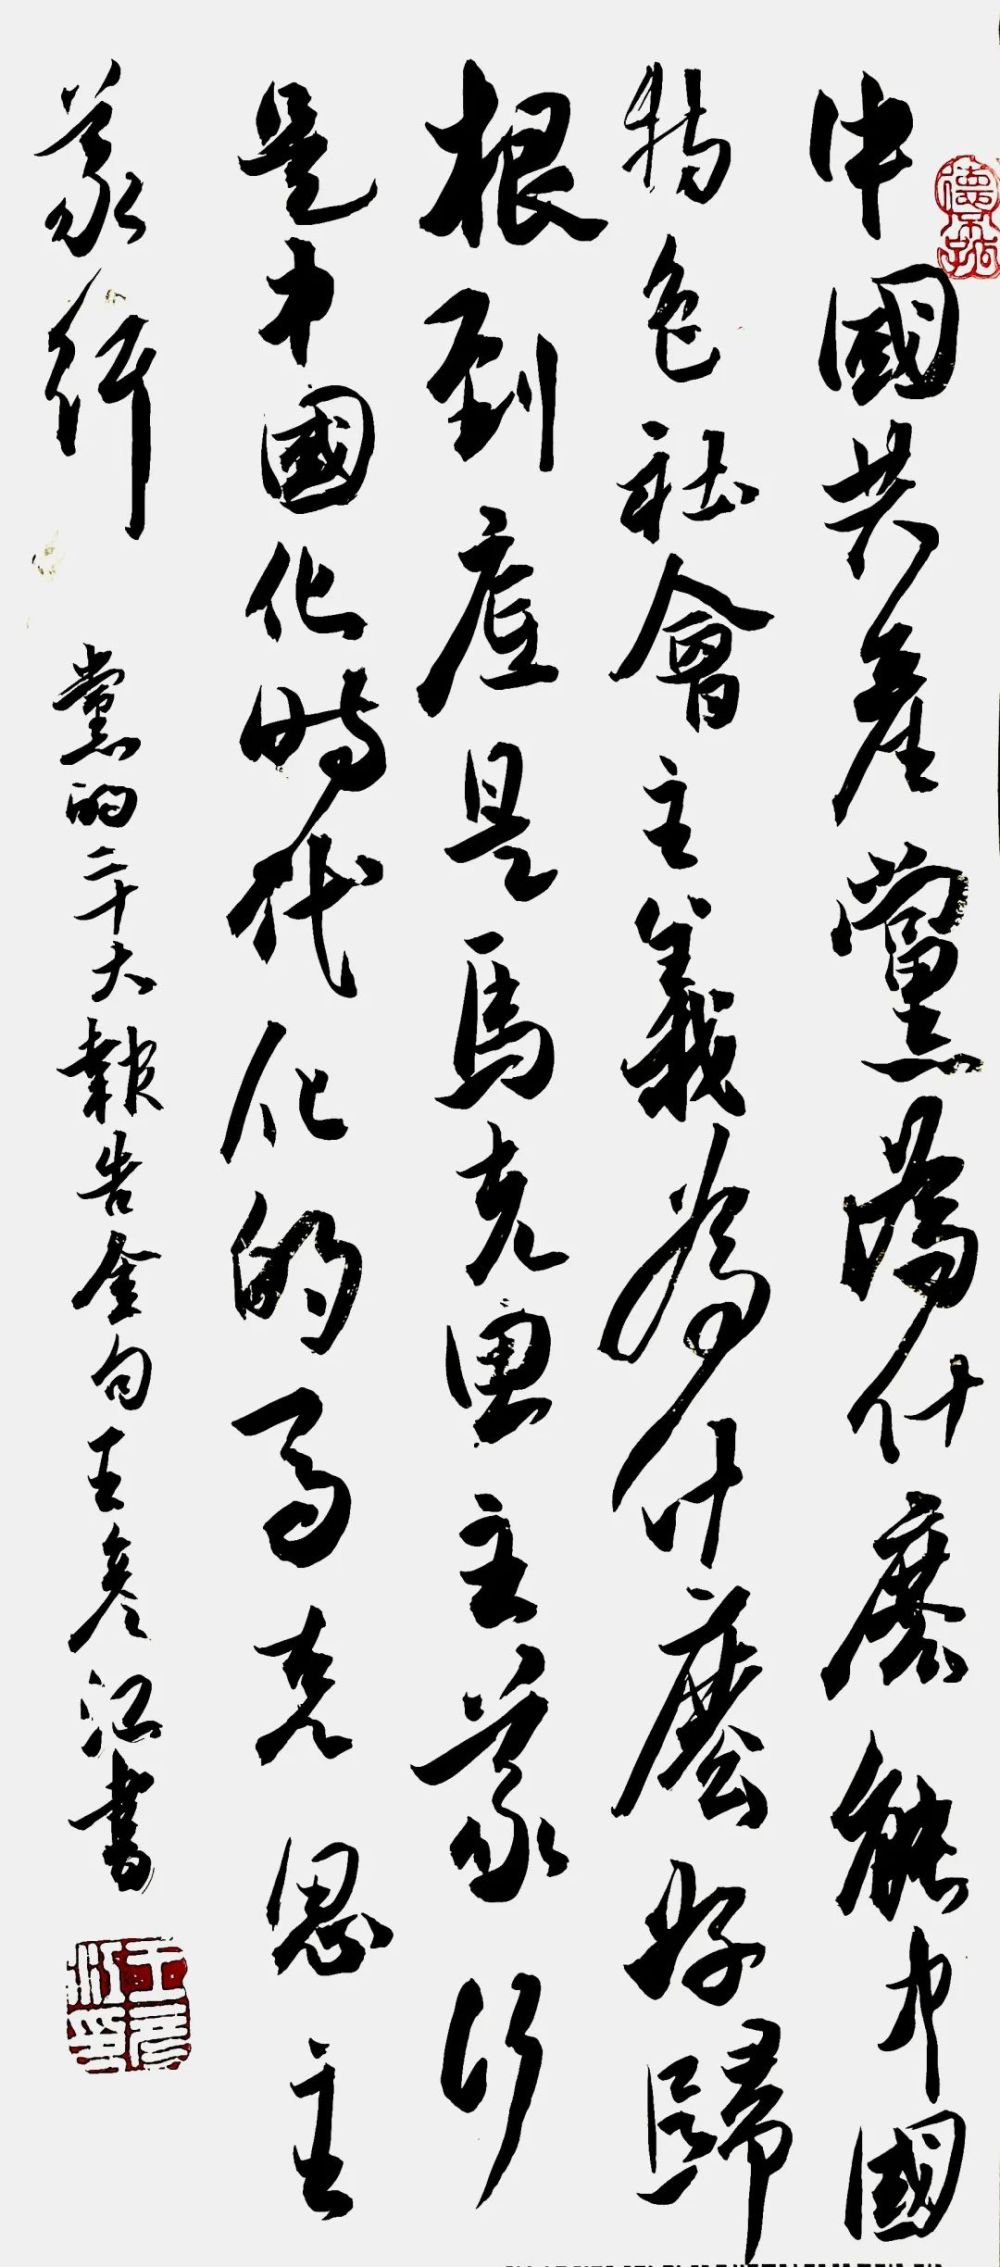 中國共產黨為什麼能中國
特色社會主義為什麼好歸
根到底是馬克思主義行
是中國化時代化的馬克思主
義行
黨的二十大報告金句王彥江書
王彥江印